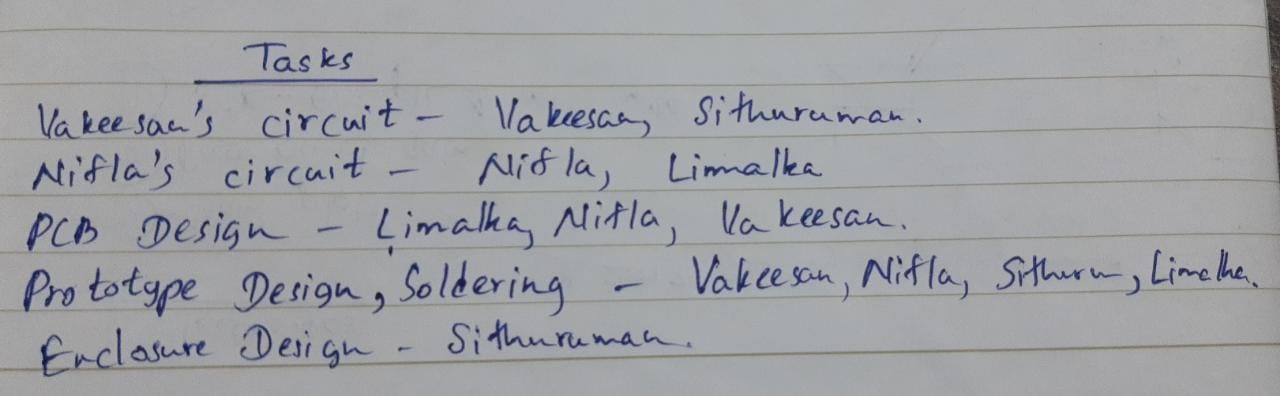 Tasks
Vakeesan's circuit - Vakeesan, Sithuruman.
Nifla's circuit - Nifla, Limalka
PCB Design - Limalka, Nifla, Vakeesan.
Prototype Design, Soldering - Vakeesan, Nifla, Sithuru, Limalka.
Enclosure Design - Sithuruman.